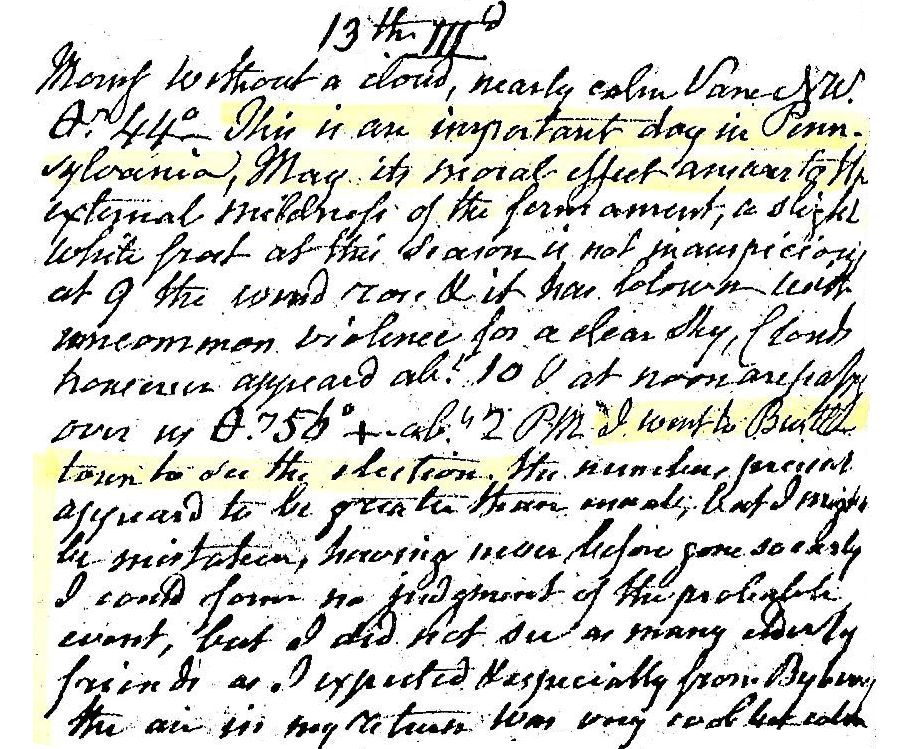 13th III^d
Morng without a cloud, nearly calm Vane NW.
44° This is an important day in Penn-
sylvania, May its moral effect answer to the
external mildness of the firmament, a slight
white frost at this season is not inauspicious
at 9 the wind rose & it has blown with
uncommon violence for a clear sky, Clouds
however appeard abt 10 & at noon are passg
over us 56° + abt 2 PM I went to Bustle
town to see the election. the number present
appeard to be greater than usual, but I might
be mistaken, having never before gone so early
I could form no judgment of the probable
event, but I did not see as many elderly
friends as I expected & especially from Byberry
the air in my return was very cool but calm